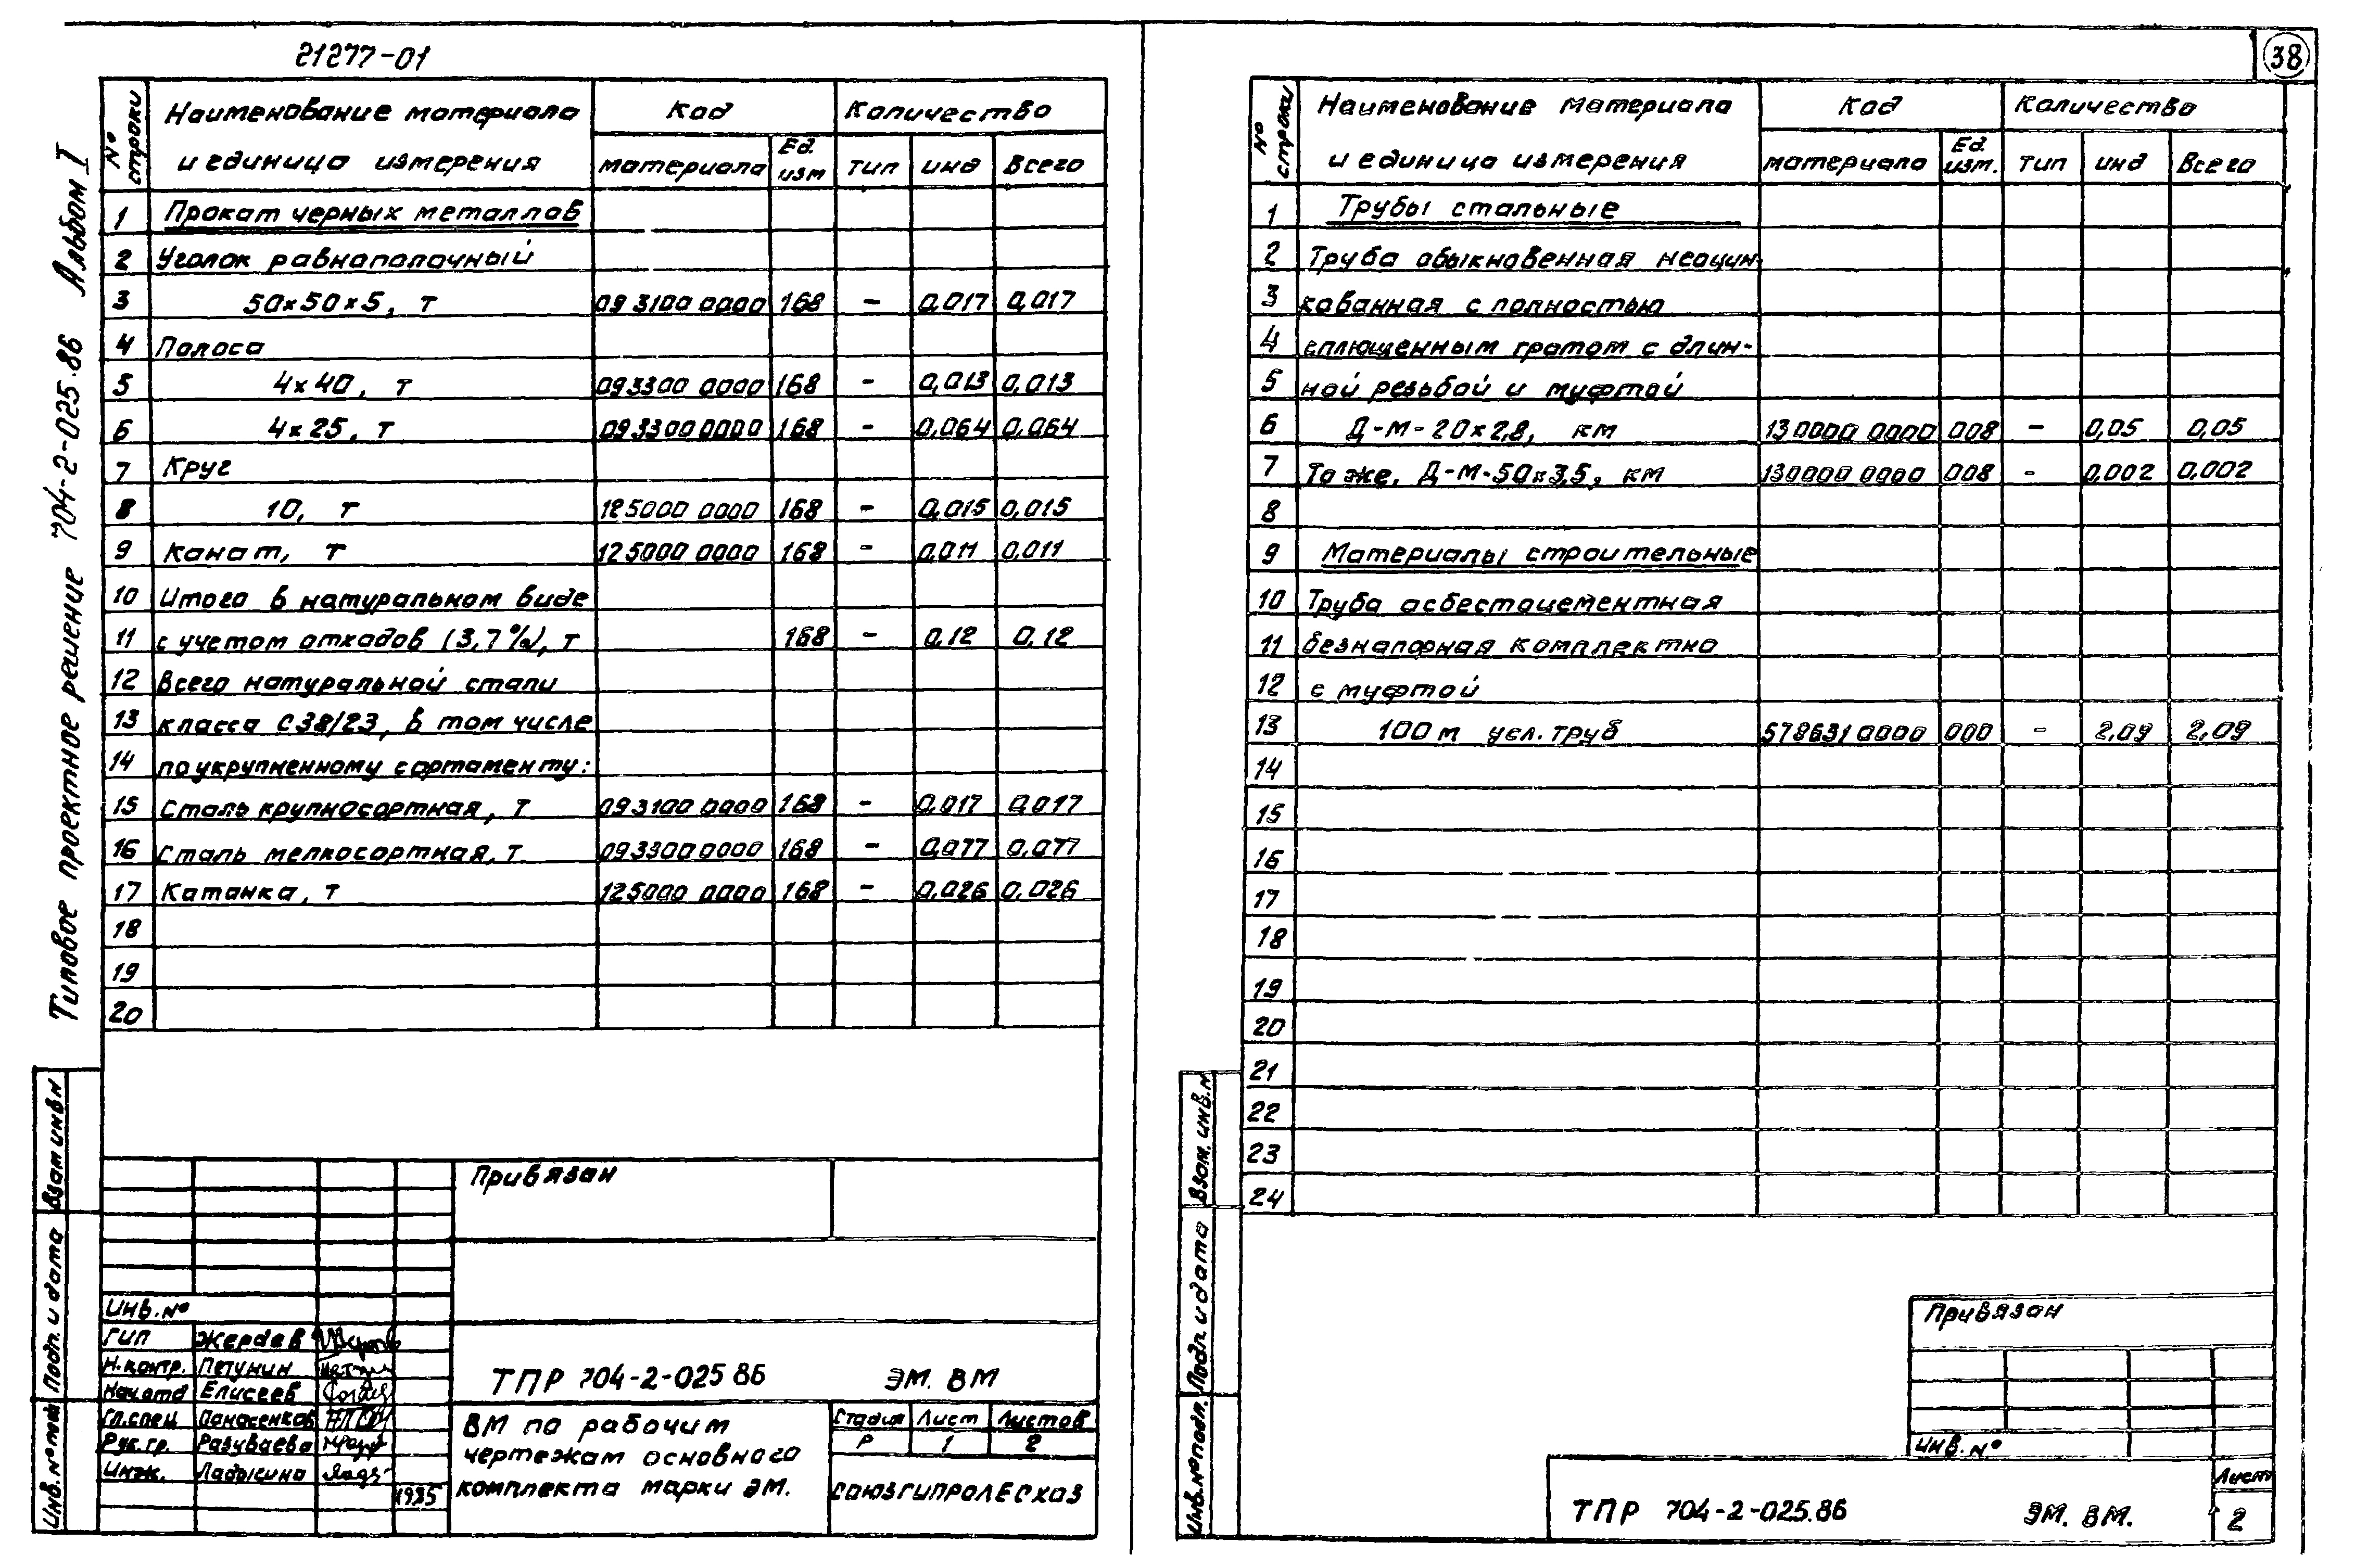 21277-01
38
Типовое проектное решение 704-2-025.86 Альбом I
№ строки
Наименование материала
и единица измерения
Код
материала
Ед. изм
Количество
тип инд Всего
1 Прокат черных металлов
2 Уголок равнополочный
3 50×50×5, т 093100 0000 168 – 0,017 0,017
4 Полоса
5 4×40, т 093300 0000 168 – 0,013 0,013
6 4×25, т 093300 0000 168 – 0,064 0,064
7 Круг
8 10, т 125000 0000 168 – 0,015 0,015
9 Канат, т 125000 0000 168 – 0,011 0,011
10 Итого в натуральном виде
11 с учетом отходов (3,7%), т 168 – 0,12 0,12
12 Всего натуральной стали
13 класса С38/23, в том числе
14 по укрупненному сортаменту:
15 Сталь крупносортная, т 093100 0000 168 – 0,017 0,017
16 Сталь мелкосортная, т 093300 0000 168 – 0,077 0,077
17 Катанка, т 125000 0000 168 – 0,026 0,026
18
19
20
Взам инв.№
Подп. и дата
Инв.№ подл
Привязан
Инв.№
ГИП Жердев
Н.контр. Петунин
Нач.отд Елисеев
Гл.спец Панасенков
Рук.гр. Разуваева
Инж. Ладысина
1985
ТПР 704-2-025 86 ЭМ. ВМ
ВМ по рабочим
чертежам основного
комплекта марки ЭМ.
Стадия Лист Листов
Р 1 2
СОЮЗГИПРОЛЕСХОЗ
№ строки
Наименование материала
и единица измерения
Код
материала
Ед. изм.
Количество
тип инд Всего
1 Трубы стальные
2 Труба обыкновенная неоцин
3 кованная с полностью
4 сплющенным гратом с длин-
5 ной резьбой и муфтой
6 Д-М-20×2,8, км 130000 0000 008 – 0,05 0,05
7 То же, Д-М-50×3,5, км 130000 0000 008 – 0,002 0,002
8
9 Материалы строительные
10 Труба асбестоцементная
11 безнапорная комплектно
12 с муфтой
13 100 м усл. труб 578631 0000 000 – 2,09 2,09
14
15
16
17
18
19
20
21
22
23
24
Взам. инв.№
Подп. и дата
Инв.№ подл.
Привязан
Инв. №
ТПР 704-2-025.86 ЭМ. ВМ.
Лист
2